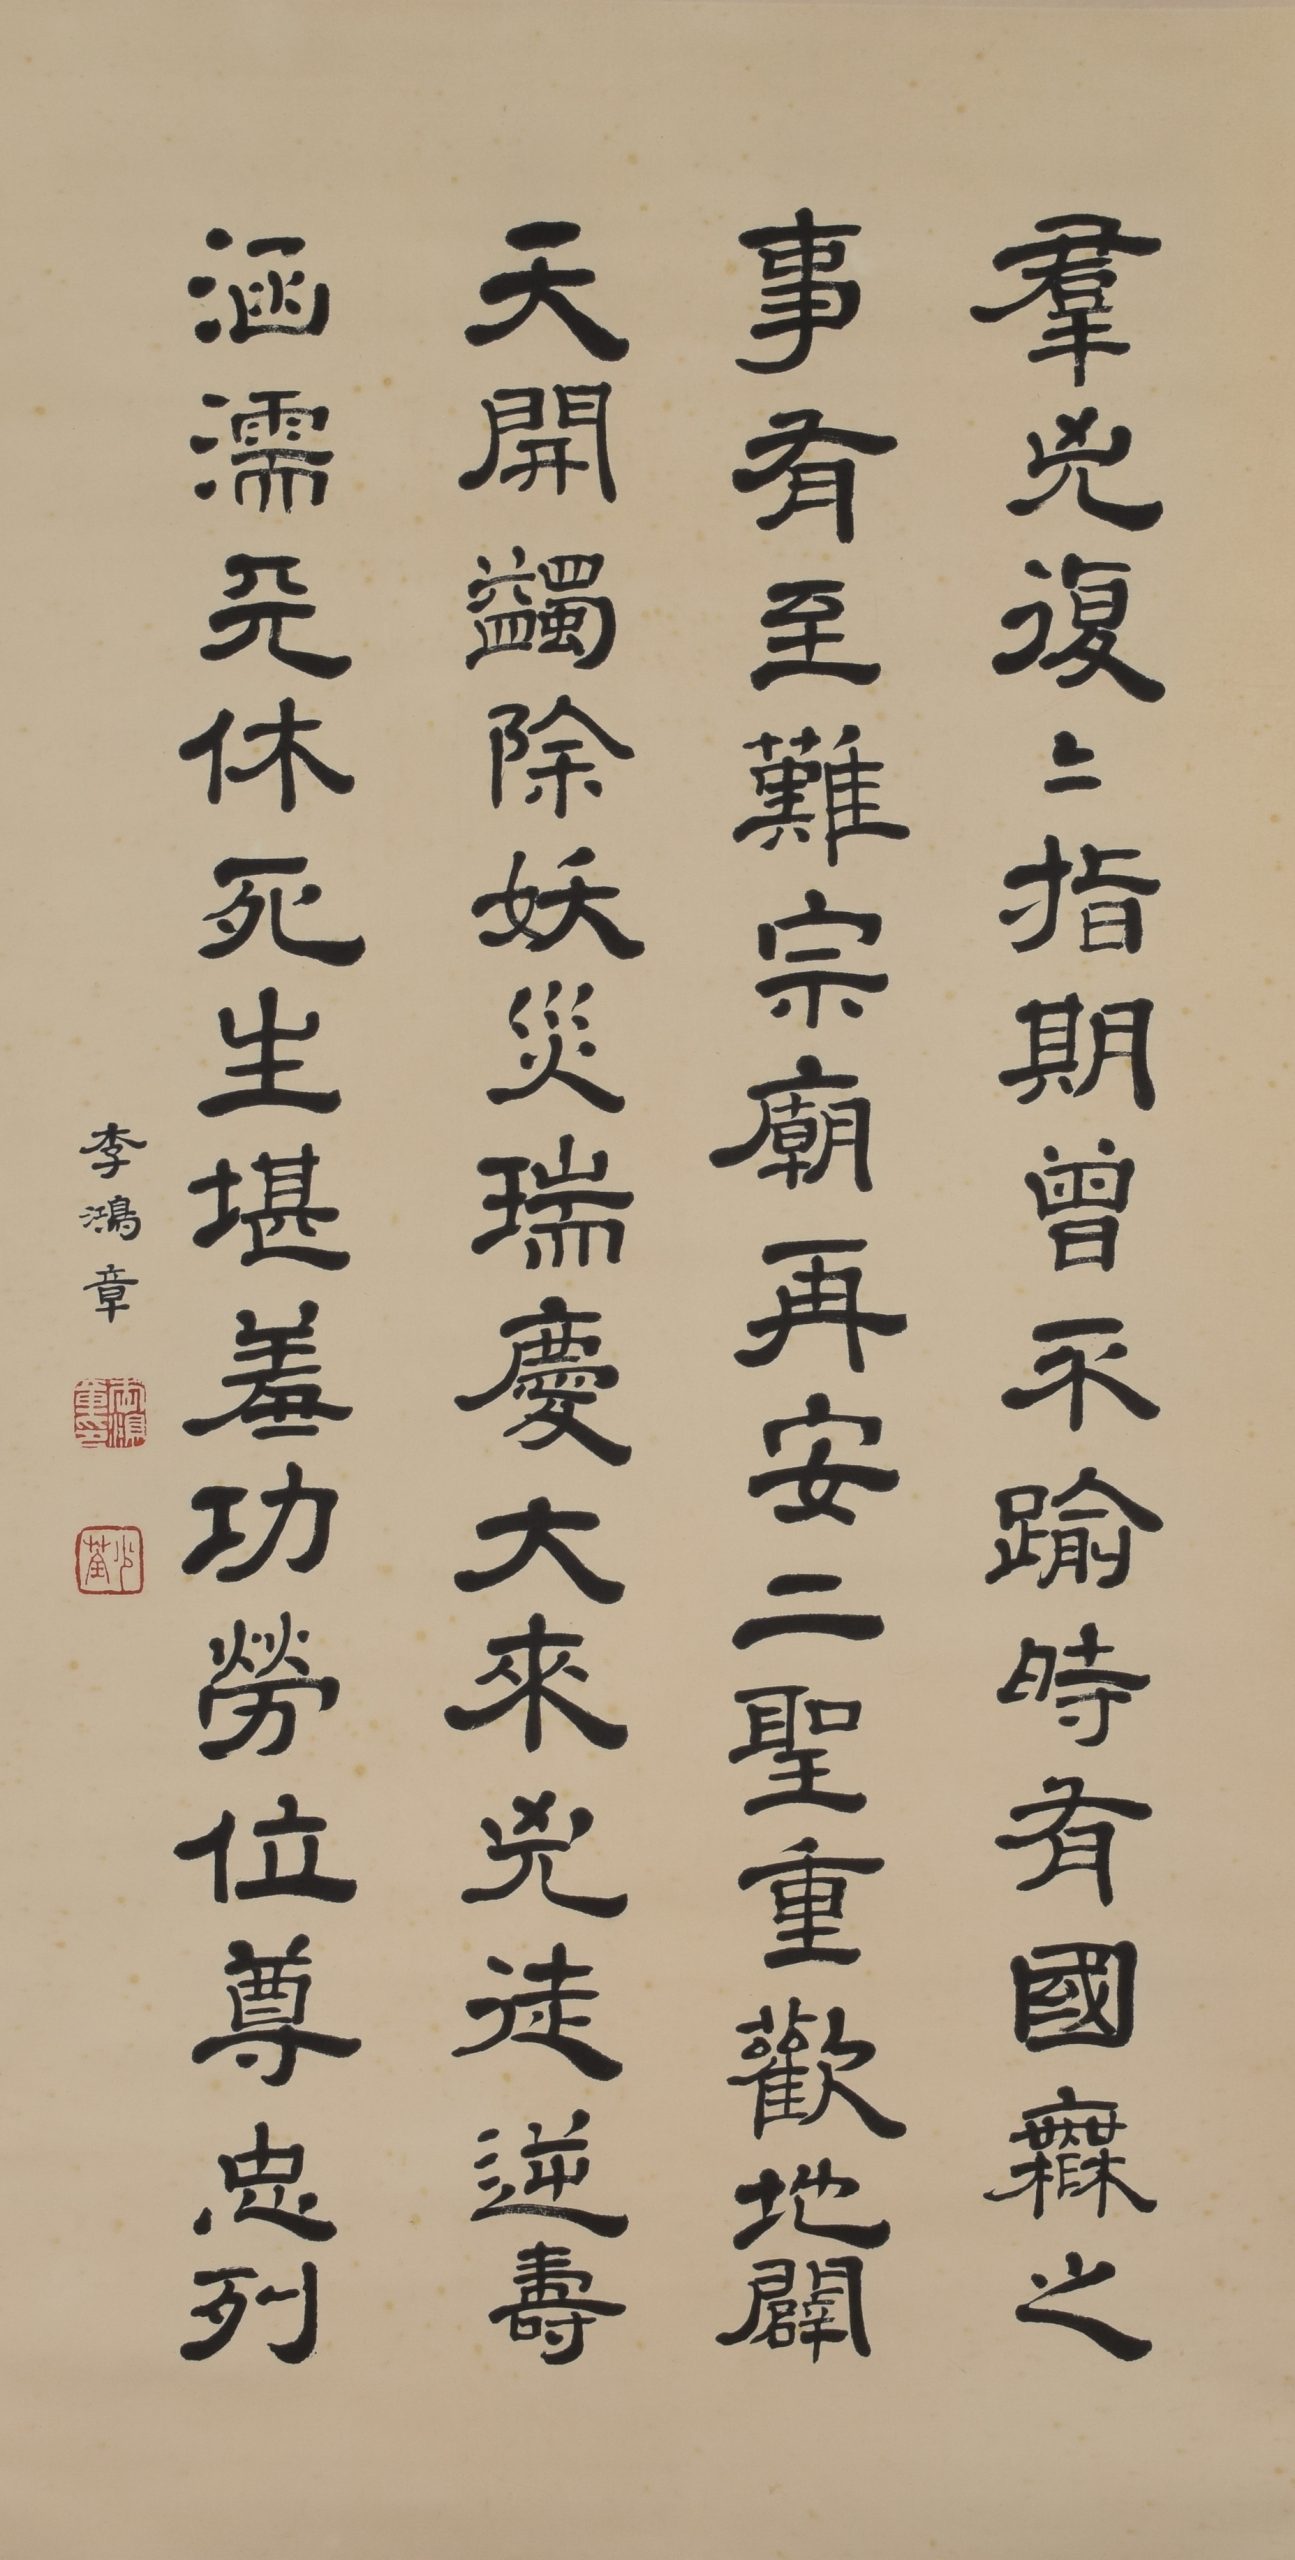 羣兇復〻指期曾不踰時有國無之
事有至難宗廟再安二聖重歡地闢
天開蠲除妖災瑞慶大來兇徒逆壽
涵濡天休死生堪羞功勞位尊忠列
李鴻章
李鴻章印
少荃